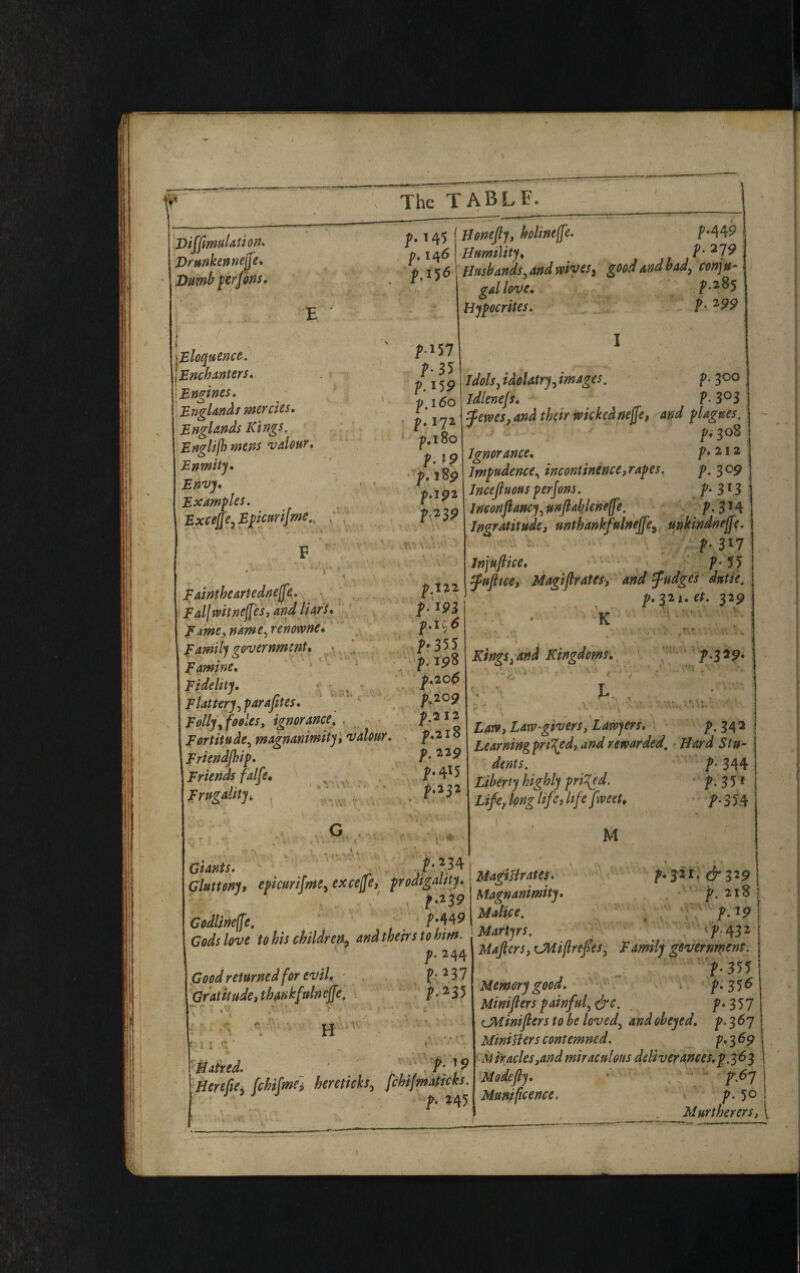 The TABLE.
Diſſimulation. p. 145
Drunkenneſſe. p. 146
Dumb perſons. p. 156
E
Eloquence. p. 157
Enchanters. p. 35
Engines. p. 159
Englands mercies. p. 160
Englands Kings. p. 172
Engliſh mens valour. p. 180
Enmity. p. 19
Envy. p. 189
Examples. p. 192
Exceſſe, Epicuriſme. p. 239
F
Faintheartedneſſe. p. 122
Falſwitneſſes, and liars. p. 193
Fame, name, renowne.
Family government. p. 355
Famine. p. 198
Fidelity. p. 206
Flattery, paraſites. p. 209
Folly, fooles, ignorance. p. 212
Fortitude, magnanimity, valour. p. 218
Friendſhip. p. 229
Friends falſe. p. 415
Frugality. p. 232
G
Giants. p. 234
Gluttony, epicuriſme, exceſſe, prodigality.
p. 239
Godlineſſe. p. 449
Gods love to his children, and theirs to him.
p. 244
Good returned for evil. p. 237
Gratitude, thankfulneſſe. p. 235
H
Hatred. p. 19
Hereſie, ſchiſme, hereticks, ſchiſmaticks.
p. 245
Honeſty, holineſſe. p. 449
Humility. p. 279
Husbands, and wives, good and bad, conju-
gal love. p. 285
Hypocrites. p. 299
I
Idols, idolatry, images. p. 300
Idleneſs. p. 303
Jewes, and their wickedneſſe, and plagues.
p. 308
Ignorance. p. 212
Impudence, incontinence, rapes. p. 309
Inceſtuous perſons. p. 313
Inconſtancy, unſtableneſſe. p. 314
Ingratitude, unthankfulneſſe, unkindneſſe.
p. 317
Injuſtice. p. 55
Juſtice, Magiſtrates, and Judges dutie.
p. 321. et. 329
K
Kings, and Kingdoms. p. 329.
L
Law, Law-givers, Lawyers. p. 342
Learning prized, and rewarded. Hard Stu-
dents. p. 344
Liberty highly prized. p. 351
Life, long life, life ſweet. p. 354
M
Magiſtrates. p. 321. & 329
Magnanimity. p. 218
Malice. p. 19
Martyrs. p. 432
Maſters, Miſtreſſes, Family government.
p. 355
Memory good. p. 356
Miniſters painful, &c. p. 357
Miniſters to be loved, and obeyed. p. 367
Miniſters contemned. p. 369
Miracles, and miraculous deliverances. p. 363
Modeſty. p. 67
Munificence. p. 50
Murtherers,